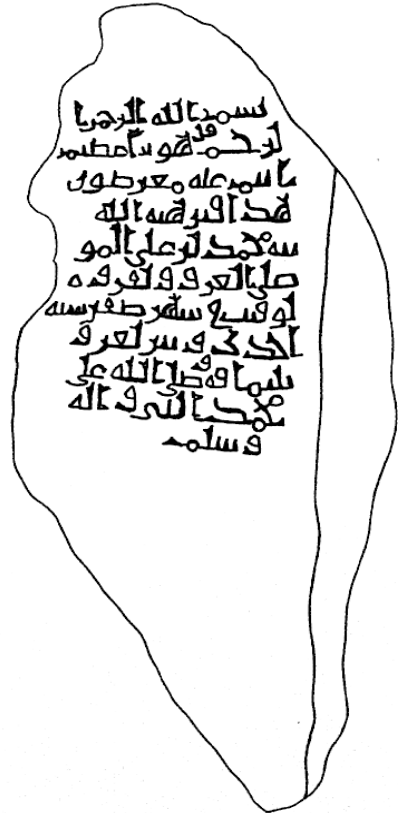 بسم الله الرحمن ا
لرحيم قل هو نبا عظيم
انتم عنه معرضون
هذا قبر هبه الله
بن محمد بن علي المو
صلي
توفي في شهر صفر سنه
احدى و
ثلثمائه وصلى الله على
محمد النبي واله
وسلم